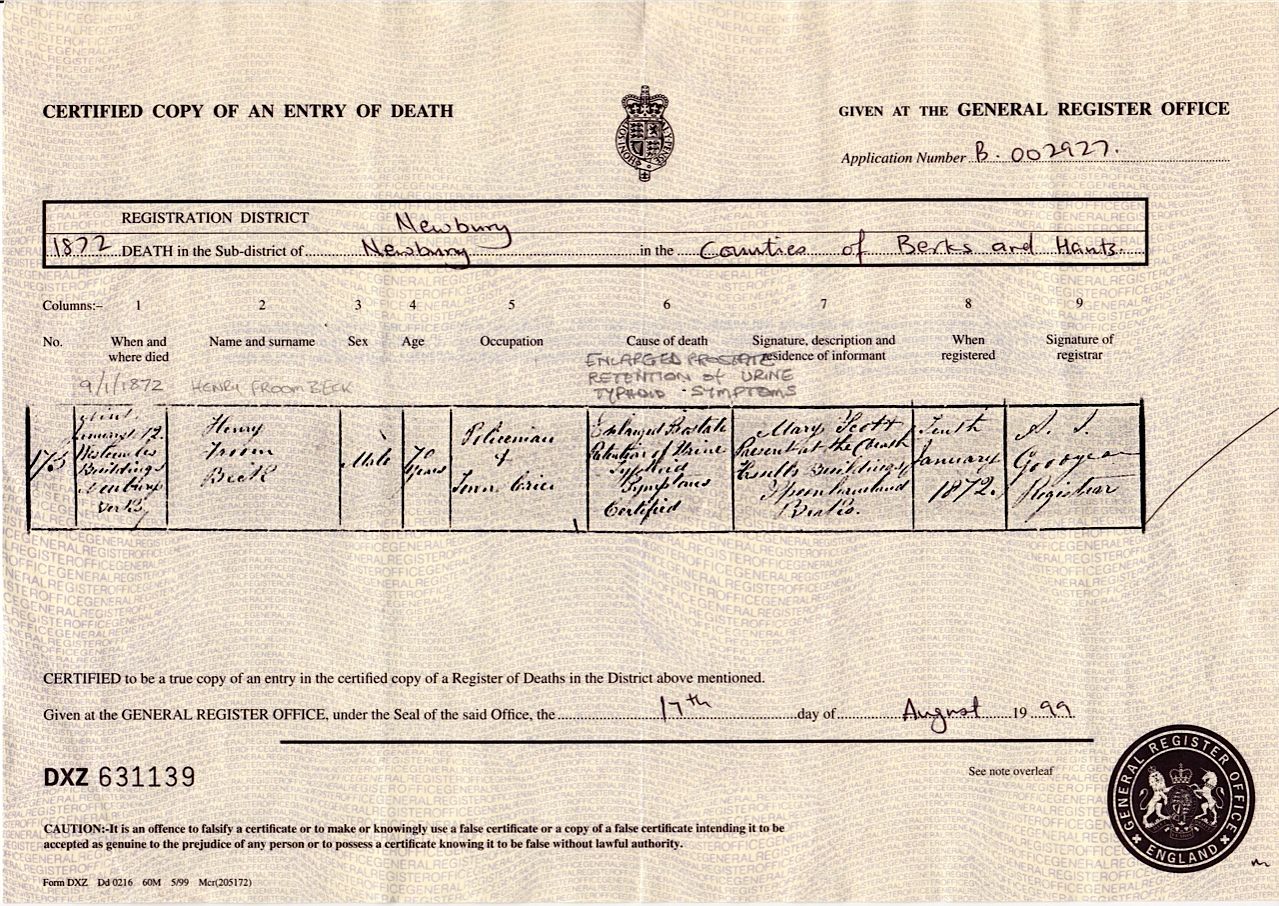 CERTIFIED COPY OF AN ENTRY OF DEATH
GIVEN AT THE GENERAL REGISTER OFFICE
Application Number B. 002927.
REGISTRATION DISTRICT Newbury
1872 DEATH in the Sub-district of Newbury in the Counties of Berks and Hants
Columns:- 1 2 3 4 5 6 7 8 9
No. When and where died Name and surname Sex Age Occupation Cause of death Signature, description and residence of informant When registered Signature of registrar
9/1/1872 HENRY FROOM BECK
ENLARGED PROSTATE
RETENTION of URINE
TYPHOID SYMPTOMS
Buildings
Newbury
Berks
Henry
Froom
Beck
Male
Years
Policeman
&
Town Crier
Enlarged Prostate
Retention of Urine
Typhoid
Symptoms
Certified
Mary Scott
Present at the Death
Buildings
Speenhamland
Tenth
January
1872.
Goodyear
Registrar
CERTIFIED to be a true copy of an entry in the certified copy of a Register of Deaths in the District above mentioned.
Given at the GENERAL REGISTER OFFICE, under the Seal of the said Office, the 17th day of August 19 99
DXZ 631139
See note overleaf
CAUTION:-It is an offence to falsify a certificate or to make or knowingly use a false certificate or a copy of a false certificate intending it to be
accepted as genuine to the prejudice of any person or to possess a certificate knowing it to be false without lawful authority.
Form DXZ Dd 0216 60M 5/99 Mcr(205172)
GENERAL REGISTER OFFICE
ENGLAND